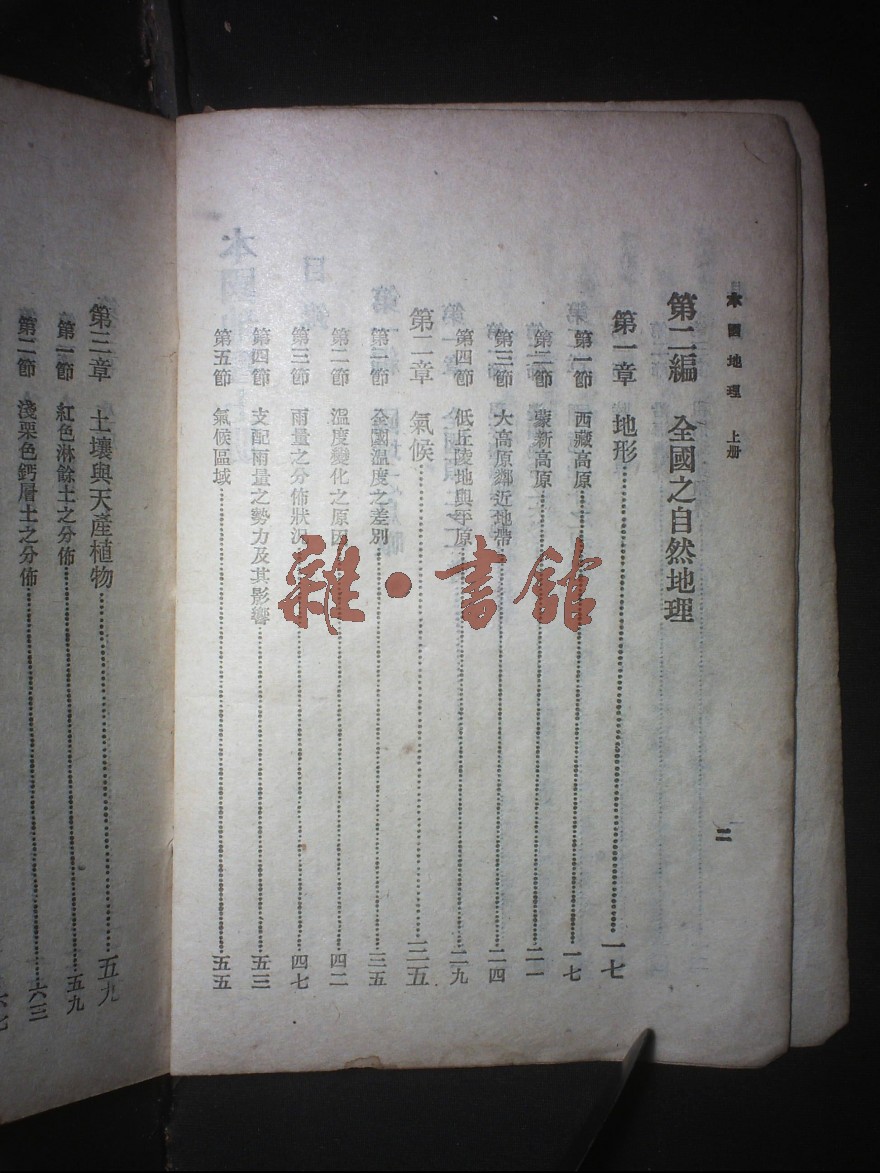 本國地理 上册
二
第二編 全國之自然地理
第一章 地形……一七
第一節 西藏高原……一七
第二節 蒙新高原……二一
第三節 大高原鄰近地帶……二四
第四節 低丘陵地與平原……二九
第二章 氣候……三五
第一節 全國溫度之差別……三五
第二節 溫度變化之原因……四二
第三節 雨量之分佈狀況……四七
第四節 支配雨量之勢力及其影響……五三
第五節 氣候區域……五五
第三章 土壤與天產植物……五九
第一節 紅色淋餘土之分佈……五九
第二節 淺栗色鈣層土之分佈……六三
雜·書館